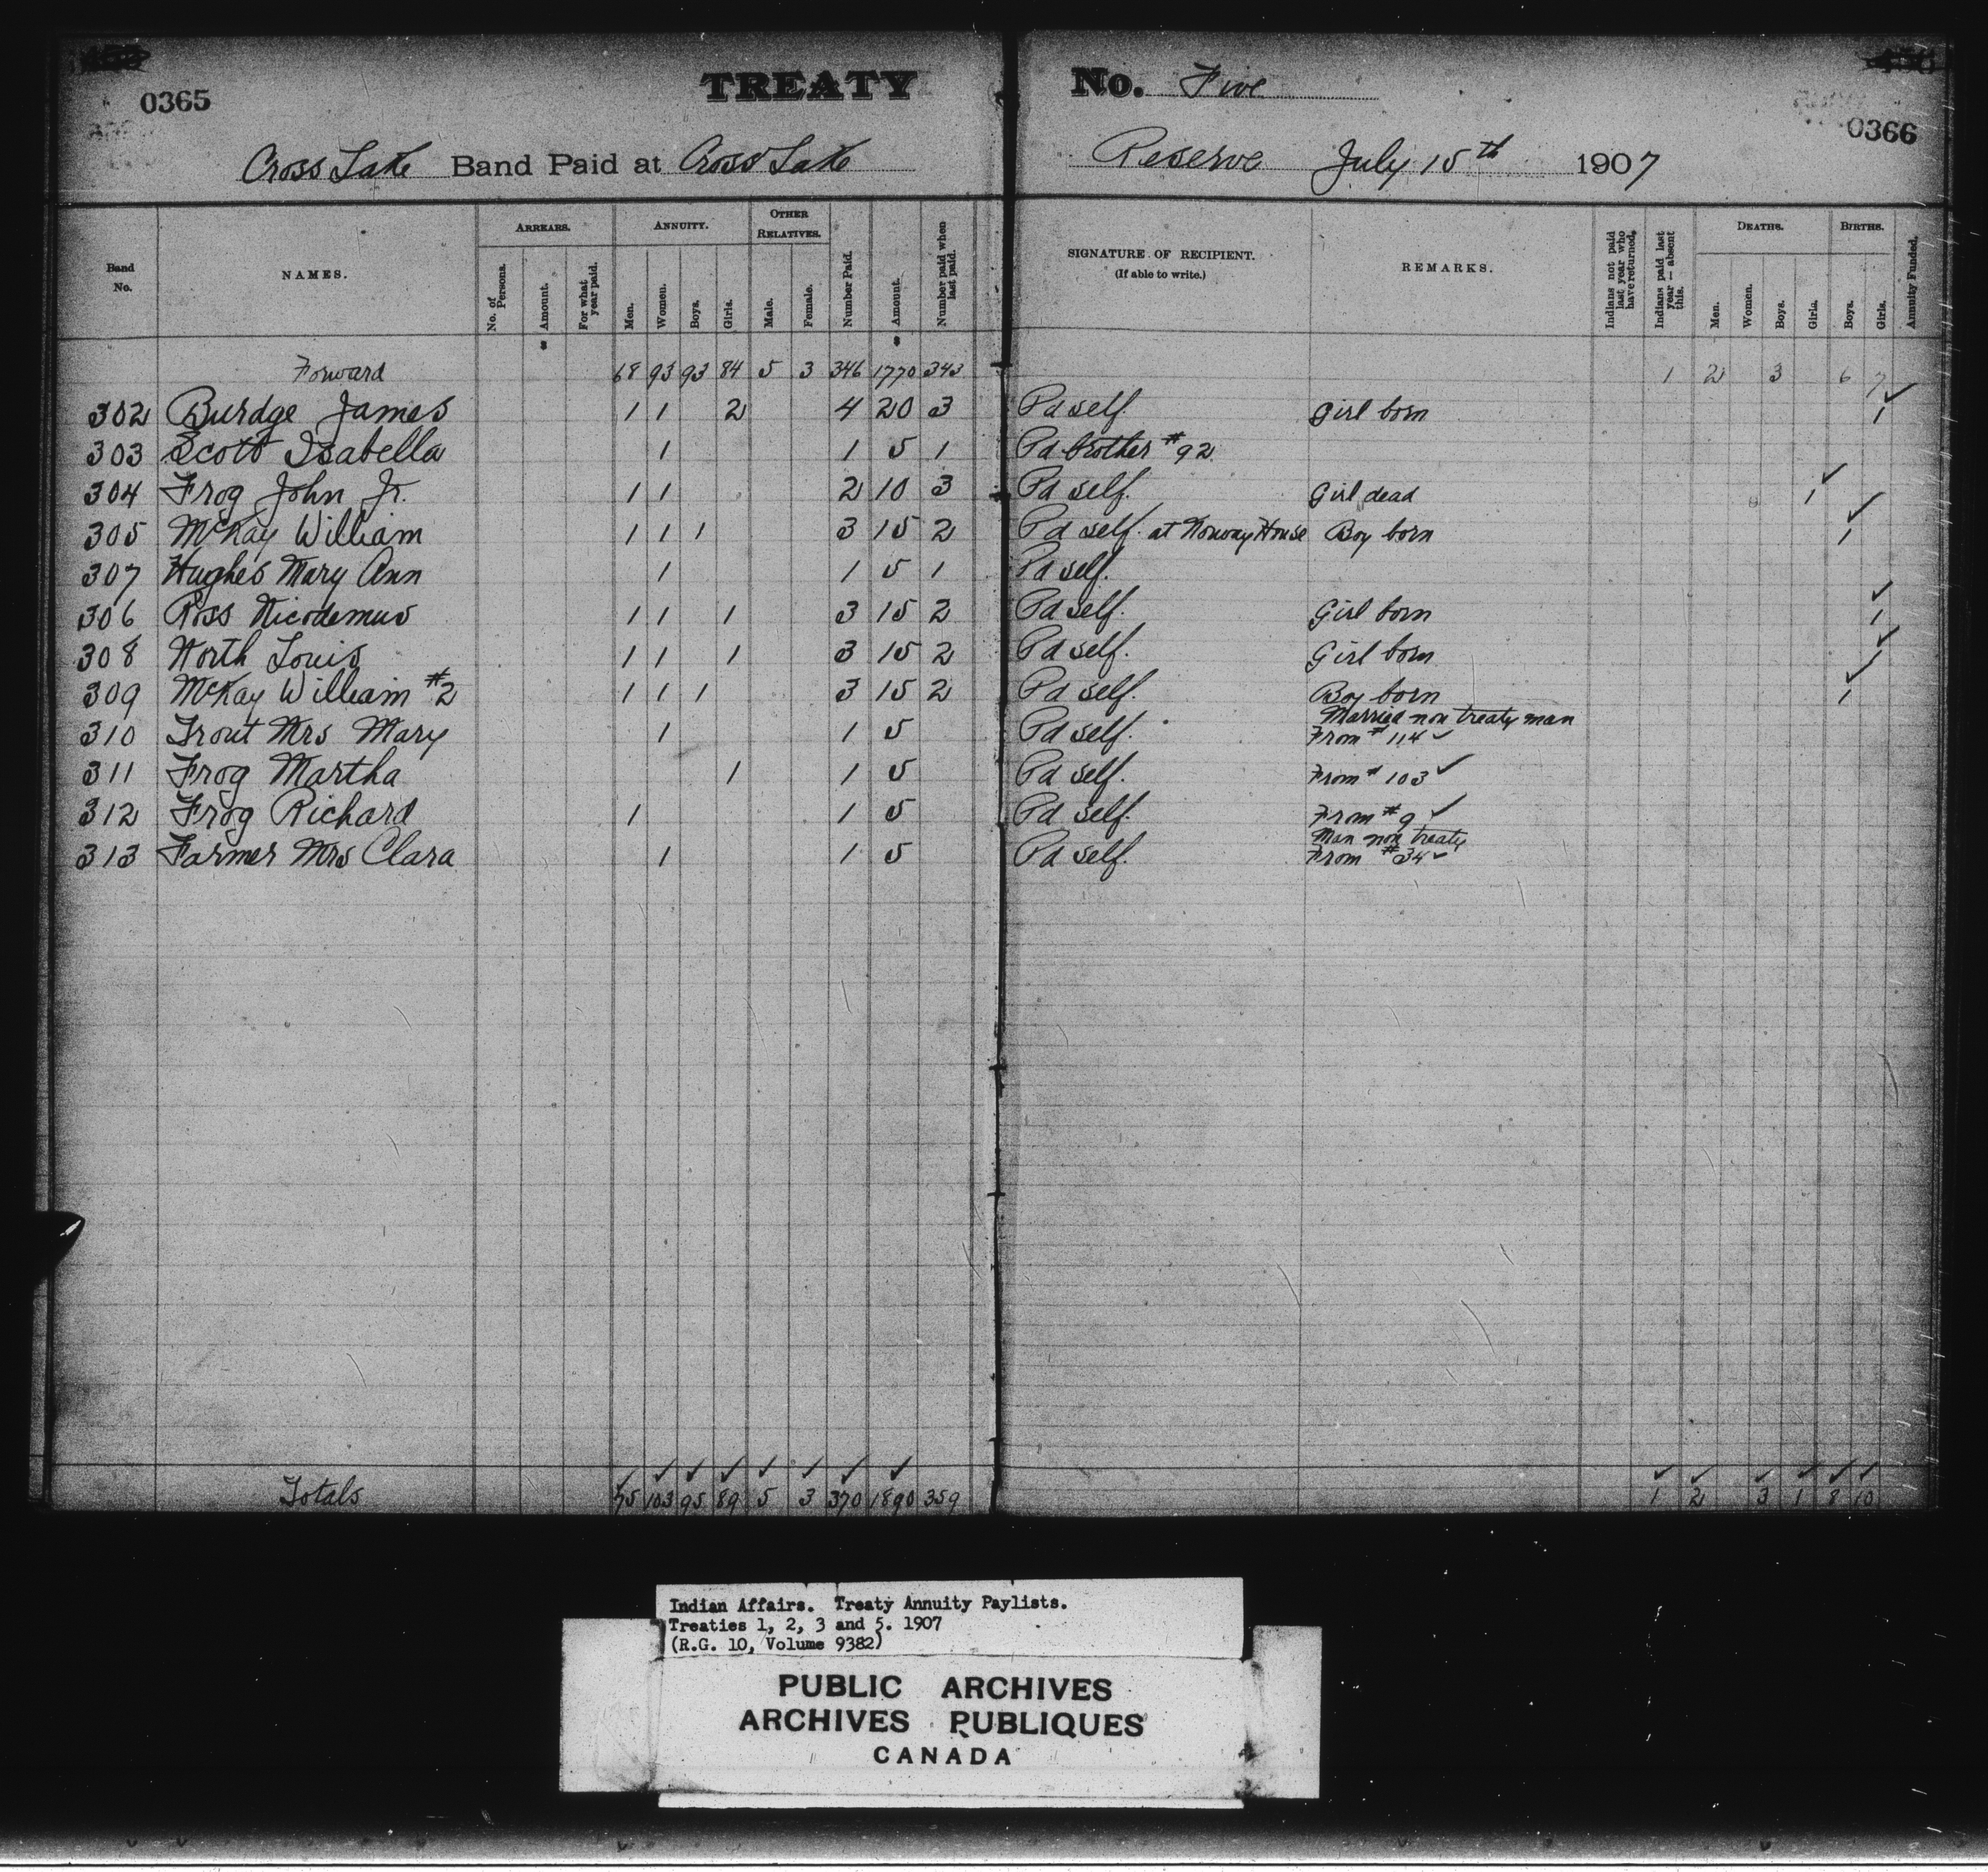 0365 TREATY No. Five 0366
Cross Lake Band Paid at Cross Lake Reserve July 15th 1907
Band No. NAMES. ARREARS. No. of Persons. Amount. For what year paid. ANNUITY. Men. Women. Boys. Girls. OTHER RELATIVES. Male. Female. Number Paid. Amount. Number paid when last paid. SIGNATURE OF RECIPIENT. (If able to write.) REMARKS. Indians not paid last year who have returned. Indians paid last year — absent this. DEATHS. Men. Women. Boys. Girls. BIRTHS. Boys. Girls. Annuity Funded.
Forward 68 93 93 84 5 3 346 1770 343 1 2 3 6 7
302 Burdge James 1 1 2 4 20 3 Pd self. Girl born 1
303 Scott Isabella 1 1 5 1 Pd brother #92
304 Frog John Jr. 1 1 2 10 3 Pd self. Girl dead 1
305 McKay William 1 1 1 3 15 2 Pd self. at Norway House Boy born 1
307 Hughes Mary Ann 1 1 5 1 Pd self.
306 Ross Nicodemus 1 1 1 3 15 2 Pd self. Girl born 1
308 North Louis 1 1 1 3 15 2 Pd self. Girl born 1
309 McKay William #2 1 1 1 3 15 2 Pd self. Boy born 1
310 Trout Mrs Mary 1 1 5 Pd self. Married non treaty man From #114
311 Frog Martha 1 1 5 Pd self. From # 103
312 Frog Richard 1 1 5 Pd self. From #9
313 Farmer Mrs Clara 1 1 5 Pd self. Man non treaty From #34
Totals 75 103 95 89 5 3 370 1890 359 1 2 3 1 8 10
Indian Affairs. Treaty Annuity Paylists.
Treaties 1, 2, 3 and 5. 1907
(R.G. 10, Volume 9382)
PUBLIC ARCHIVES
ARCHIVES PUBLIQUES
CANADA